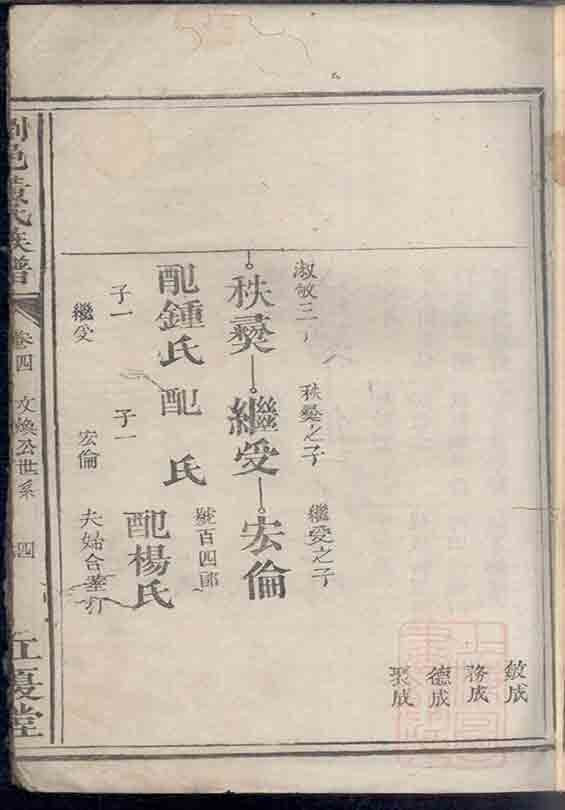 敏成
務成
德成
聚成
淑敏三子
秩彜
配鍾氏
子一
繼受
秩彜之子
繼受
配 氏
子一
宏倫
繼受之子
宏倫
號百四郎
配楊氏
夫婦合塟打
邑袁氏族譜
卷四
文煥公世系
四